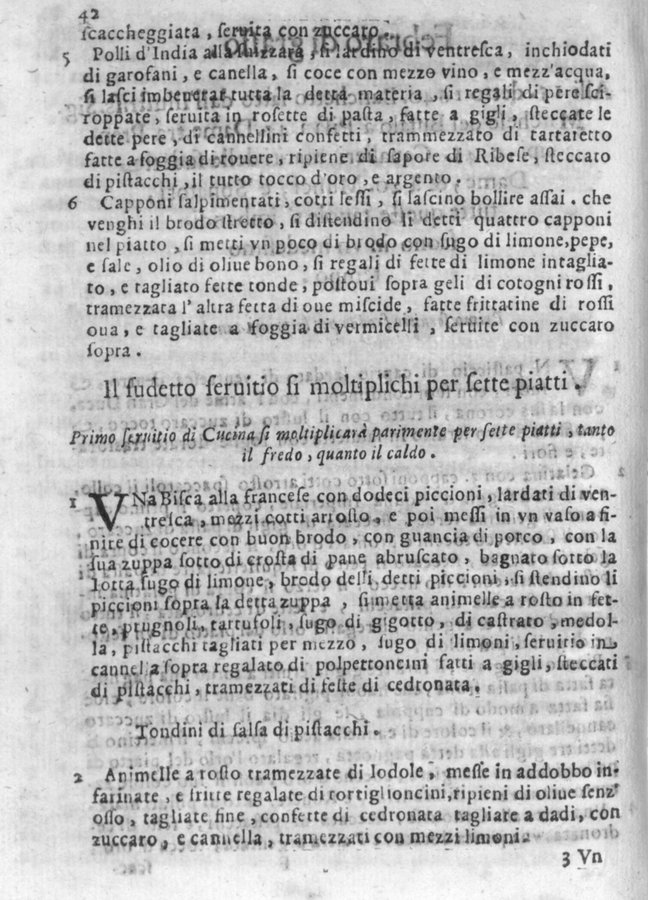 42
ſcaccheggiata, ſeruita con zuccaro.
5 Polli d'India alla ſuizzara, ſi lardino di ventreſca, inchiodati
di garofani, e canella, ſi coce con mezzo vino, e mezz'acqua,
ſi laſci imbeuerar tutta la detta materia, ſi regali di pere ſci-
roppate, ſeruita in roſette di paſta, fatte a gigli, ſteccate le
dette pere, di cannellini confetti, trammezzato di tartaretto
fatte a foggia di rouere, ripiene di ſapore di Ribeſe, ſteccato
di piſtacchi, il tutto tocco d'oro, e argento.
6 Capponi ſalpimentati, cotti leſſi, ſi laſcino bollire aſſai. che
venghi il brodo ſtretto, ſi diſtendino li detti quattro capponi
nel piatto, ſi metti vn poco di brodo con ſugo di limone, pepe,
e ſale, olio di oliue bono, ſi regali di fette di limone intaglia-
to, e tagliato fette tonde, poſtoui ſopra geli di cotogni roſſi,
tramezzata l'altra fetta di oue miſcide, fatte frittatine di roſſi
oua, e tagliate a foggia di vermicelli, ſeruite con zuccaro
ſopra.
Il ſudetto ſeruitio ſi moltiplichi per ſette piatti.
Primo ſeruitio di Cucina ſi moltiplicarà parimente per ſette piatti, tanto
il fredo, quanto il caldo.
1 VNa Biſca alla franceſe con dodeci piccioni, lardati di ven-
treſca, mezzi cotti arroſto, e poi meſſi in vn vaſo a fi-
nire di cocere con buon brodo, con guancia di porco, con la
ſua zuppa ſotto di croſta di pane abruſcato, bagnato ſotto la
ſotta ſugo di limone, brodo delli detti piccioni, ſi ſtendino li
piccioni ſopra la detta zuppa, ſi metta animelle a roſto in fet-
te, prugnoli, tartufoli, ſugo di gigotto, di caſtrato, medol-
la, piſtacchi tagliati per mezzo, ſugo di limoni, ſeruitio in
cannella ſopra regalato di polpettoncini fatti a gigli, ſteccati
di piſtacchi, tramezzati di feſte di cedronata.
Tondini di ſalſa di piſtacchi.
2 Animelle a roſto tramezzate di lodole, meſſe in addobbo in-
farinate, e fritte regalate di tortiglioncini, ripieni di oliue ſenz'
oſſo, tagliate fine, confette di cedronata tagliate a dadi, con
zuccaro, e cannella, tramezzati con mezzi limoni.
3 Vn